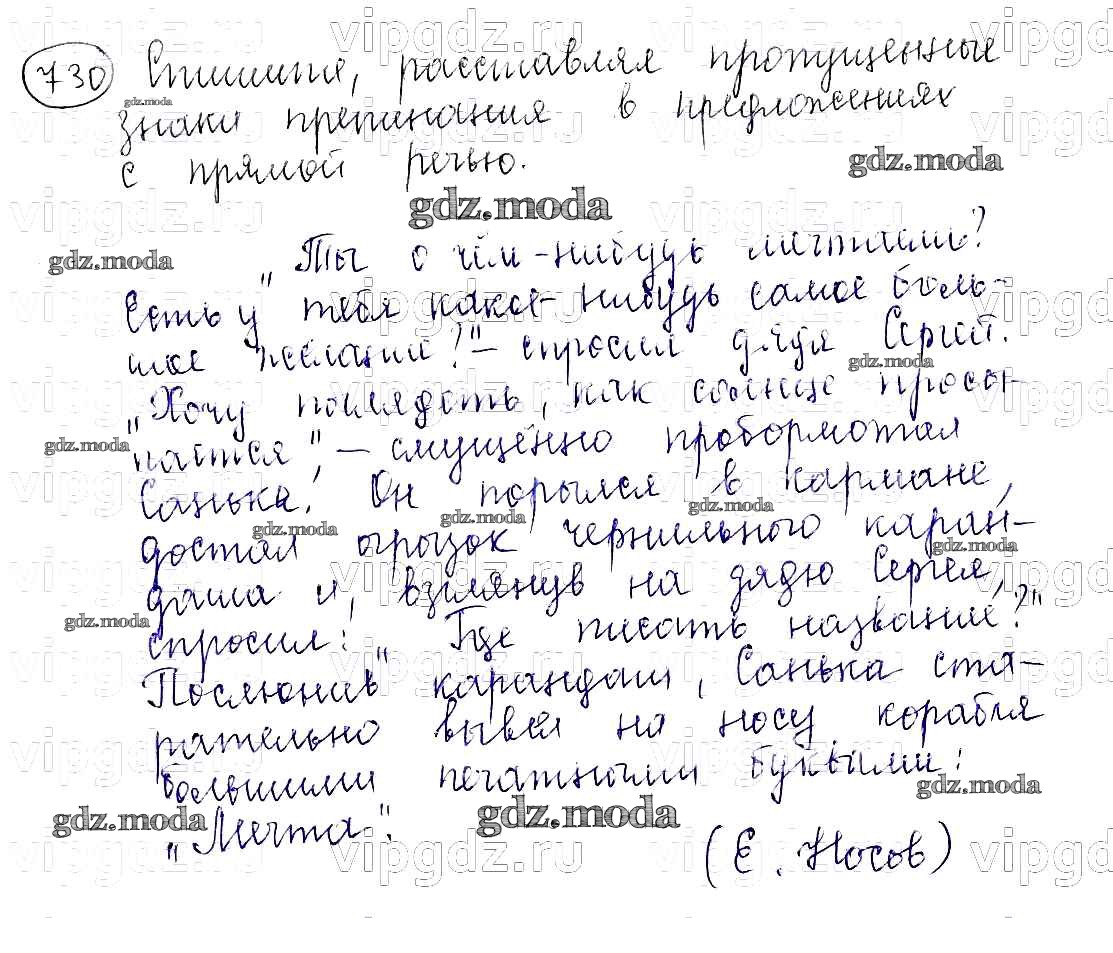 730 Спишите, расставляя пропущенные
знаки препинания в предложениях
с прямой речью.
„Ты о чём-нибудь мечтаешь?
Есть у тебя какое-нибудь самое боль-
шое желание?"— спросил дядя Сергей.
„Хочу поглядеть, как солнце просы-
пается", — смущённо пробормотал
Санька. Он порылся в кармане,
достал огрызок чернильного каран-
даша и, взглянув на дядю Сергея,
спросил: „Где писать название?"
Послюнив карандаш, Санька ста-
рательно вывел на носу корабля
большими печатными буквами:
„Мечта".
(Е. Носов)
vipgdz.ru
gdz.moda